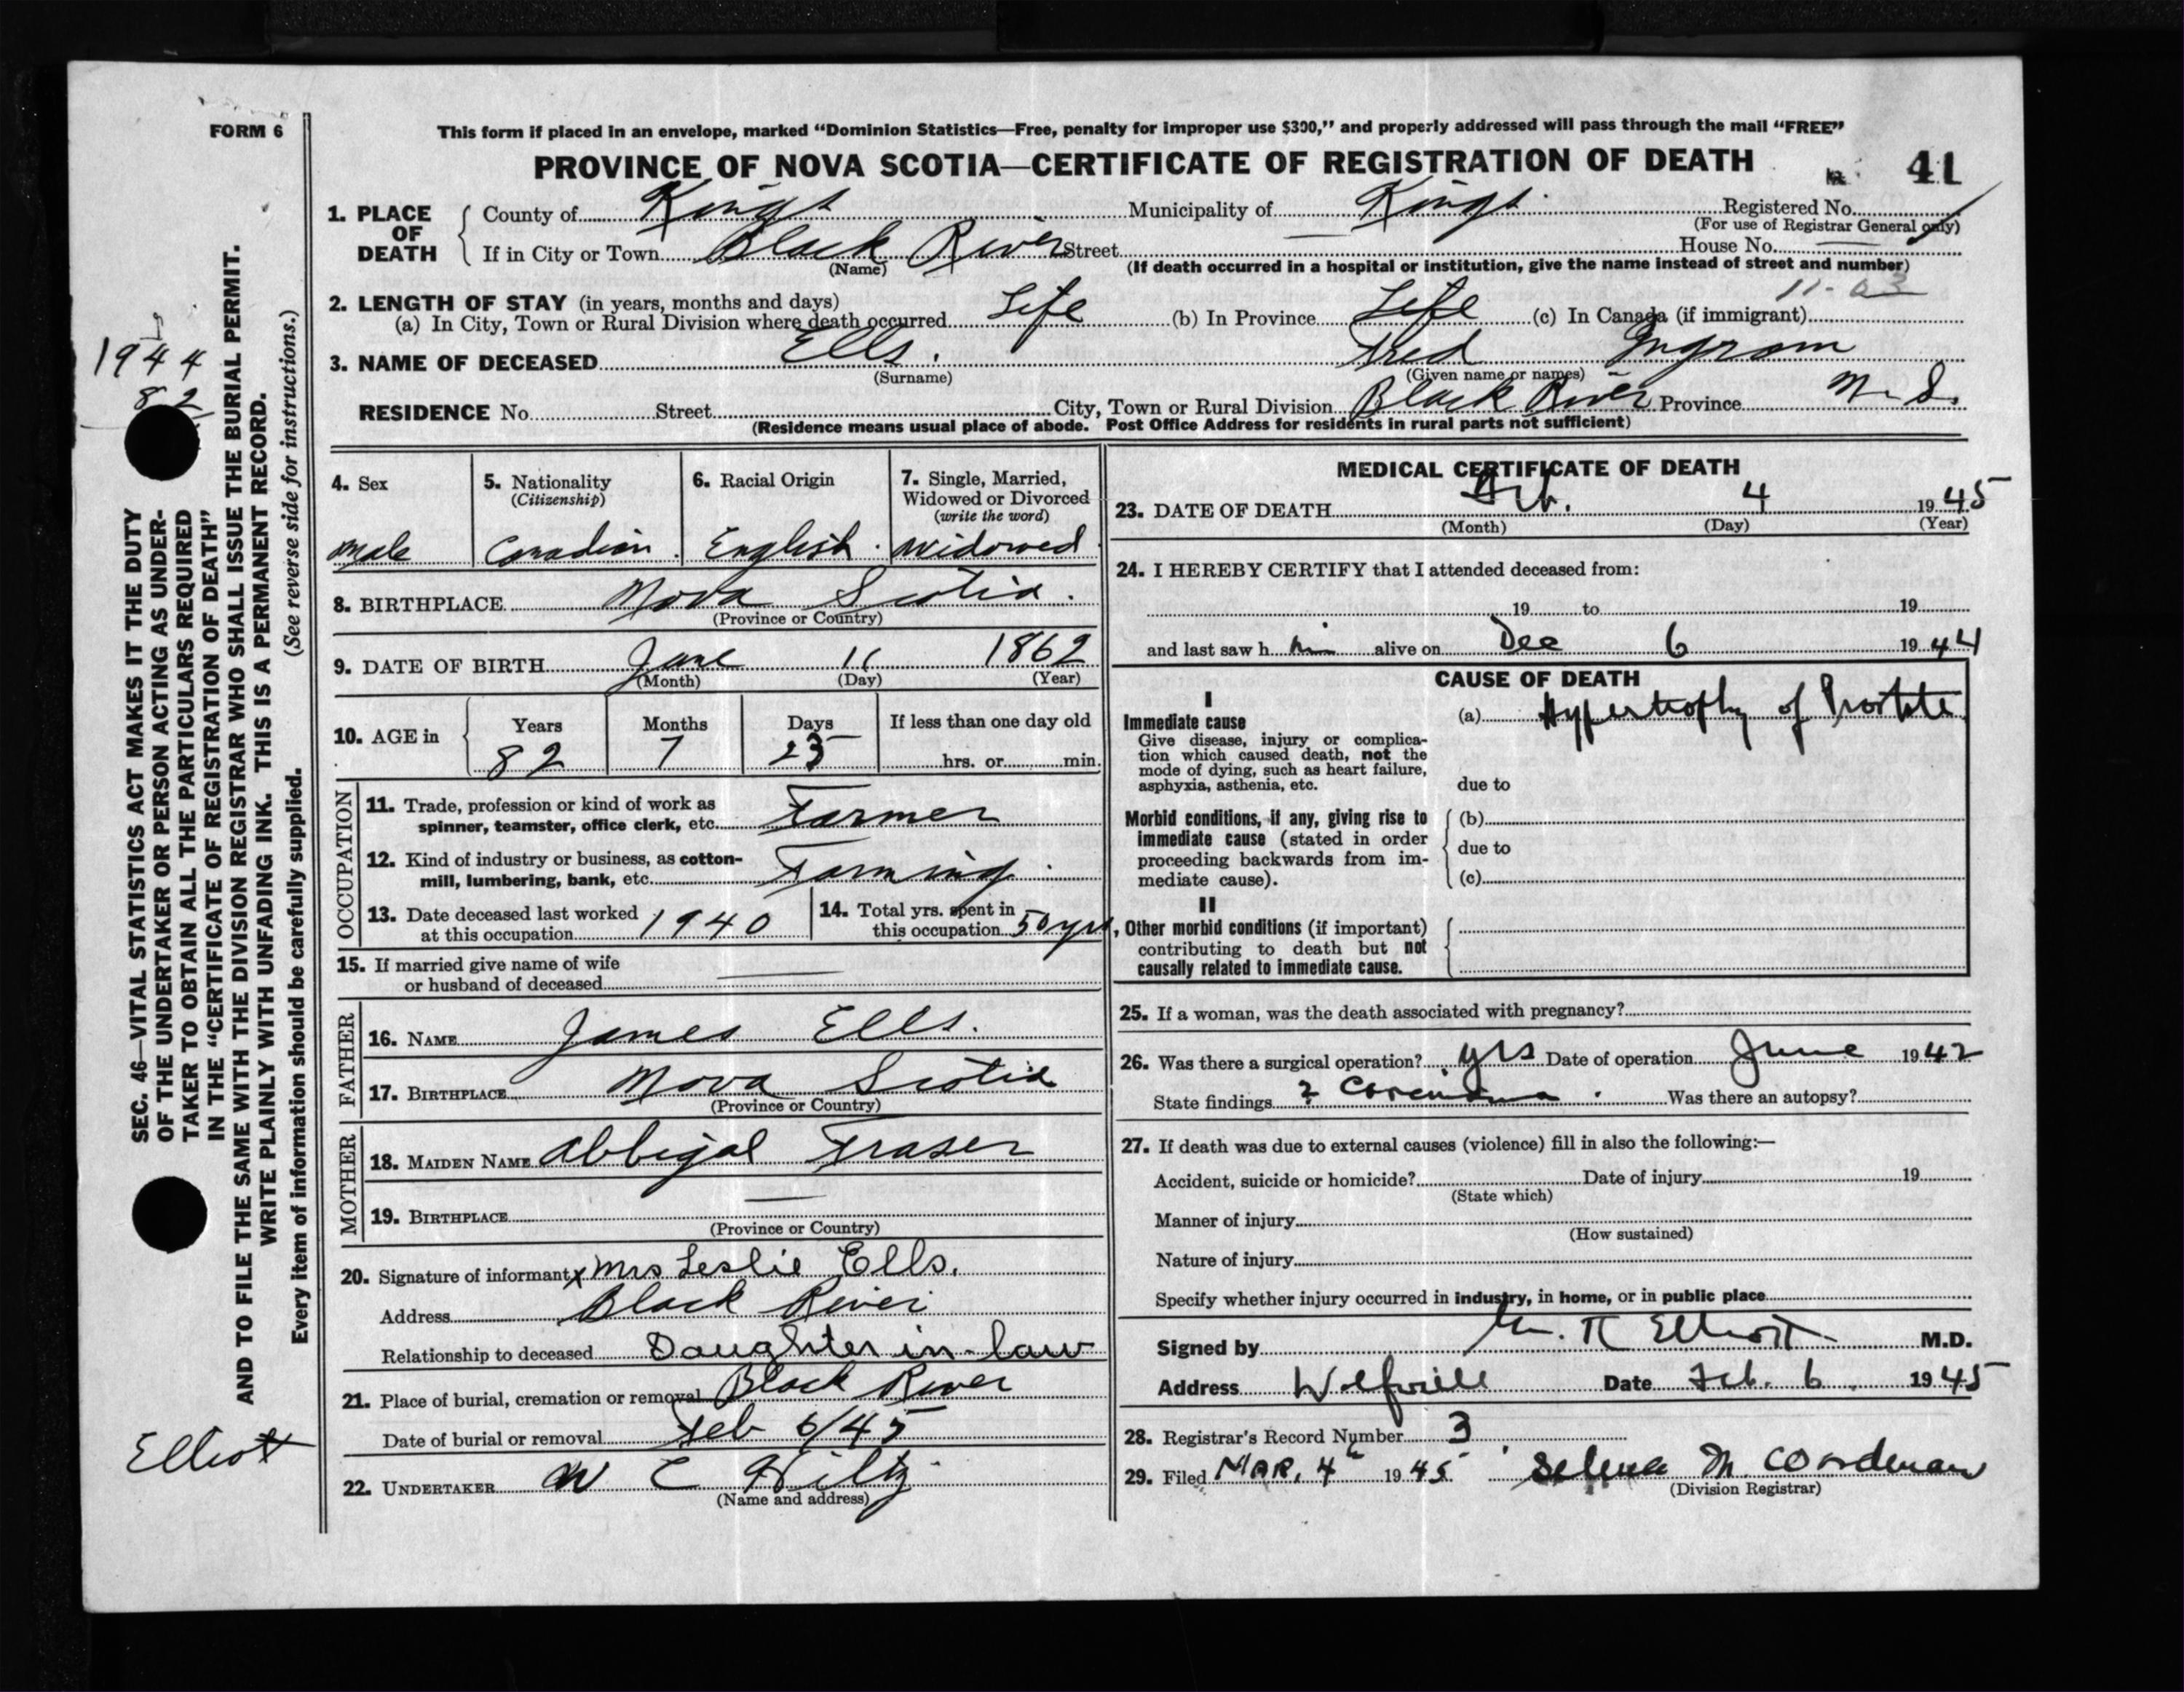 FORM 6
This form if placed in an envelope, marked “Dominion Statistics—Free, penalty for improper use $300,” and properly addressed will pass through the mail “FREE”
PROVINCE OF NOVA SCOTIA—CERTIFICATE OF REGISTRATION OF DEATH
41
1. PLACE OF DEATH
County of Kings Municipality of Kings Registered No.
(For use of Registrar General only)
If in City or Town Black River Street House No.
(Name) (If death occurred in a hospital or institution, give the name instead of street and number)
11-03
2. LENGTH OF STAY (in years, months and days)
(a) In City, Town or Rural Division where death occurred Life (b) In Province Life (c) In Canada (if immigrant)
3. NAME OF DECEASED Ells. Fred Ingram
(Surname) (Given name or names)
RESIDENCE No. Street City, Town or Rural Division Black River Province N. S.
(Residence means usual place of abode. Post Office Address for residents in rural parts not sufficient)
1944
82
SEC. 46—VITAL STATISTICS ACT MAKES IT THE DUTY
OF THE UNDERTAKER OR PERSON ACTING AS UNDER-
TAKER TO OBTAIN ALL THE PARTICULARS REQUIRED
IN THE “CERTIFICATE OF REGISTRATION OF DEATH”
AND TO FILE THE SAME WITH THE DIVISION REGISTRAR WHO SHALL ISSUE THE BURIAL PERMIT.
WRITE PLAINLY WITH UNFADING INK. THIS IS A PERMANENT RECORD.
Every item of information should be carefully supplied. (See reverse side for instructions.)
Elliott
4. Sex
male
5. Nationality
(Citizenship)
Canadian.
6. Racial Origin
English.
7. Single, Married,
Widowed or Divorced
(write the word)
widowed.
8. BIRTHPLACE Nova Scotia.
(Province or Country)
9. DATE OF BIRTH June 11 1862
(Month) (Day) (Year)
10. AGE in
Years Months Days If less than one day old
82 7 23 hrs. or min.
OCCUPATION
11. Trade, profession or kind of work as
spinner, teamster, office clerk, etc. Farmer
12. Kind of industry or business, as cotton-
mill, lumbering, bank, etc. Farming.
13. Date deceased last worked
at this occupation 1940
14. Total yrs. spent in
this occupation 50 yrs,
15. If married give name of wife
or husband of deceased
FATHER
16. NAME James Ells.
17. BIRTHPLACE Nova Scotia
(Province or Country)
MOTHER
18. MAIDEN NAME Abbigal Fraser
19. BIRTHPLACE
(Province or Country)
20. Signature of informant x Mrs Leslie Ells.
Address Black River
Relationship to deceased Daughter in-law
21. Place of burial, cremation or removal Black River
Date of burial or removal Feb 6/45
22. UNDERTAKER W C Hiltz
(Name and address)
MEDICAL CERTIFICATE OF DEATH
23. DATE OF DEATH Feb. 4 1945
(Month) (Day) (Year)
24. I HEREBY CERTIFY that I attended deceased from:
19 to 19
and last saw h im alive on Dec 6 1944
CAUSE OF DEATH
I
Immediate cause
Give disease, injury or complica-
tion which caused death, not the
mode of dying, such as heart failure,
asphyxia, asthenia, etc.
(a) Hypertrophy of Prostate
due to
Morbid conditions, if any, giving rise to
immediate cause (stated in order
proceeding backwards from im-
mediate cause).
(b)
due to
(c)
II
Other morbid conditions (if important)
contributing to death but not
causally related to immediate cause.
25. If a woman, was the death associated with pregnancy?
26. Was there a surgical operation? yes Date of operation June 1942
State findings ? Carcinoma. Was there an autopsy?
27. If death was due to external causes (violence) fill in also the following:—
Accident, suicide or homicide? Date of injury 19
(State which)
Manner of injury
(How sustained)
Nature of injury
Specify whether injury occurred in industry, in home, or in public place
Signed by R Elliott M.D.
Address Wolfville Date Feb. 6 1945
28. Registrar's Record Number 3
29. Filed MAR. 4 1945 M.
(Division Registrar)